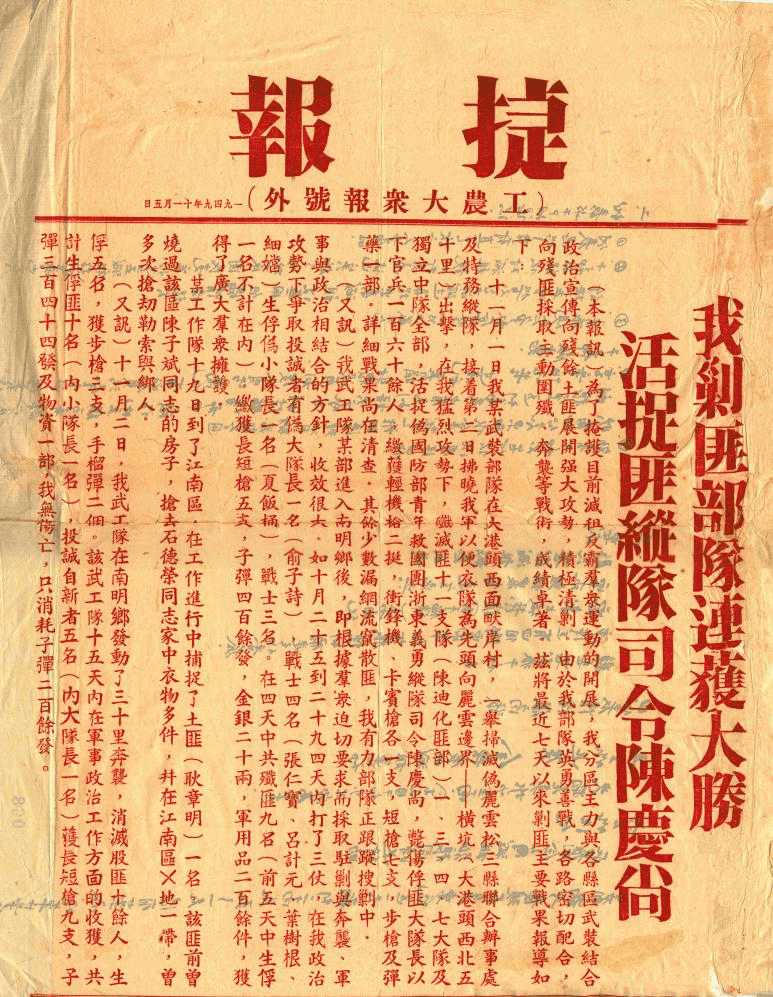 捷報
(工農大衆報號外)
一九四九年十一月五日
我剿匪部隊連獲大勝
活捉匪縱隊司令陳慶尚
(本報訊)為了掩護目前減租反霸羣衆運動的開展，我分區主力與各縣區武裝結合
政治宣傳向殘餘土匪展開强大攻勢，積極清剿，由於我部隊英勇善戰，各路密切配合，
向殘匪採取主動圍殲、奔襲等戰術，成績卓著，茲將最近七天以來剿匪主要戰果報導如
下：
十一月一日我某武裝部隊在大港頭西面畎岸村，一舉掃滅偽麗雲松三縣聯合辦事處
及特務縱隊，接着第二日拂曉我軍以便衣隊為先頭向麗雲邊界——橫坑(大港頭西北五
十里)出擊，在我猛烈攻勢下，殲滅匪十一支隊(陳迪化匪部)一、三、四、七大隊及
獨立中隊全部，活捉偽國防部青年救國團浙東義勇縱隊司令陳慶尚，斃傷俘匪大隊長以
下官兵一百六十餘人，繳獲輕機槍二挺，衝鋒機、卡賓槍各一支，短槍七支，步槍及彈
藥一部，詳細戰果尚在清查。其餘少數漏網流竄散匪，我有力部隊正跟蹤搜剿中。
(又訊)我武工隊某部進入南明鄉後，即根據羣衆迫切要求而採取駐剿與奔襲、軍
事與政治相結合的方針，收效很大．如十月二十五到二十九四天內打了三仗，在我政治
攻勢下爭取投誠者有偽大隊長一名(俞子詩)，戰士四名(張仁寶、呂計元、葉樹根、
細嬉)生俘偽小隊長一名(夏飯桶)，戰士三名。在四天中共殲匪九名(前五天中生俘
一名不計在內)，繳獲長短槍五支，子彈四百餘發，金銀二十兩，軍用品二百餘件，獲
得了廣大羣衆擁護．
某工作隊十九日到了江南區．在工作進行中捕捉了土匪(耿章明)一名，該匪前曾
燒過該區陳子斌同志的房子，搶去石德榮同志家中衣物多件，幷在江南區×地一帶，曾
多次搶劫勒索與綁人．
(又訊)十一月二日，我武工隊在南明鄉發動了三十里奔襲，消滅股匪十餘人，生
俘五名，獲步槍三支，手榴彈二個。該武工隊十五天內在軍事政治工作方面的收獲，共
計生俘匪十名(內小隊長一名)，投誠自新者五名(內大隊長一名)獲長短槍九支，子
彈三百四十四發及物資一部，我無傷亡，只消耗子彈二百餘發。